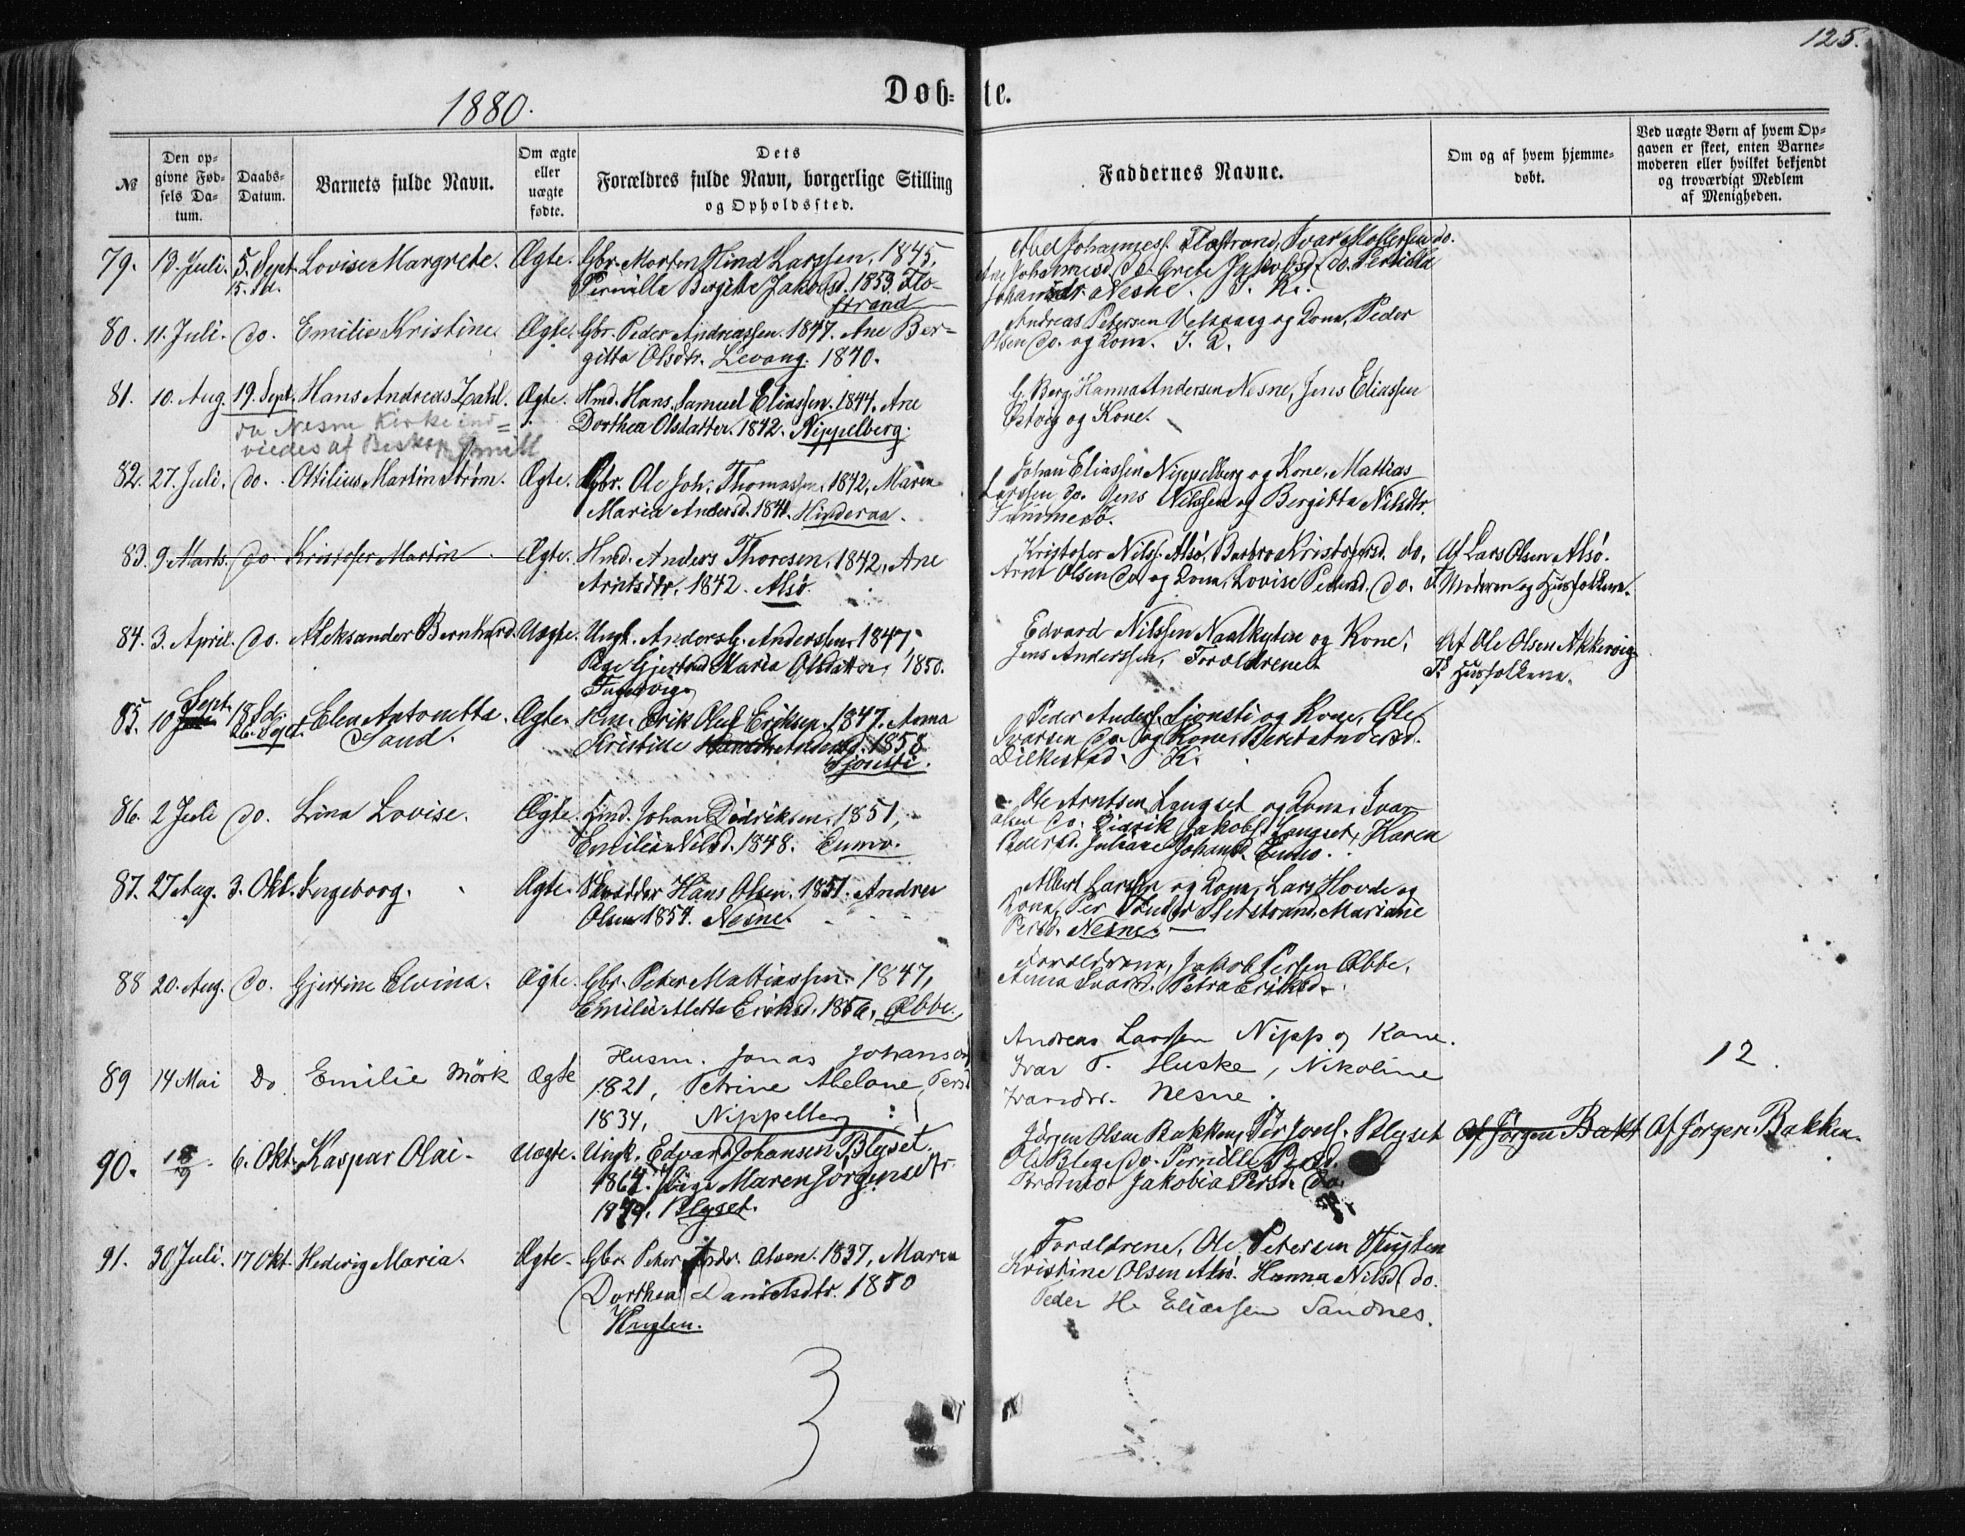 125.
1880.
Døb= te.
№
Den op=
givne Fød=
sels Da=
tum.
Daabs=
Datum.
Barnets fulde Navn.
Om ægte
eller
uægte
fødte.
Dets
Forældres fulde Navn, borgerlige Stilling
og Opholdssted.
Faddernes Navne.
Om og af hvem hjemme=
døbt.
Ved uægte Børn af hvem Op=
gaven er skeet, enten Barne=
moderen eller hvilket bekjendt
og troværdigt Medlem
af Menigheden.
79. 13. Juli. 5. Sept. Lovise Margrete. Ægte. Gbr. Morten Hind Larssen, 1845,
Pernilla Bergitte Jakobsd. 1853. Flo-
strand
Johannesf. Flostrand, Ivar do.
Johannesd. do. Grete Jakobsd. do. Pernilla
Johansdr. Nesne.
80. 11. Juli. do. Emilie Kristine. Ægte. Gbr. Peder Andreassen. 1847. Ane Ber=
gitta Olsdtr. Levang. 1840.
Andreas Petersen og Kone, Peder
Olsen do. og Kone.
81. 10. Aug. 19. Sept. Hans Andreas Zahl. Ægte. Hmd. Hans Samuel Eliassen. 1844. Ane
Dorthea Olsdatter. 1842. Nippelberg.
da Nesne Kirke ind=
viedes af Biskop Smitt
G. Berg, Hanna Andersen Nesne, Jens Eliassen
og Kone.
82. 27. Juli. do. Otilius Martin Strøm. Ægte. Gbr. Ole Joh. Thomassen. 1842, Maren
Maria Andersd. 1841. Hinderaa.
Johan Eliassen Nippelberg og Kone, Mathias
Larssen do. Jens Nilssen og Bergitta Nilsdtr.
83. 9. Marts. do. Kristofer Martin. Ægte. Hmd. Anders Thoresen, 1842, Ane
Arntsdtr. 1842. Alsø.
Kristofer Nilss. Alsø, Barbro Kristofersd. do,
Arnt Olsen do. og Kone, Lovise Pedersd. do.
Af Lars Olsen Alsø.
T. Moderen og Husfolkene.
84. 3. April. do. Aleksander Bernhard. Uægte. Ungk. Anders G. Anderssen, 1847,
Pige Gjertrud Maria Olsdatter, 1850.
Edvard Nilssen Naalkyten og Kone,
Jens Anderssen, Forældrene.
Af Ole Olsen Akkervig
T. Husfolkene.
85. 10 Sept. Elen Antonetta Ægte. Erik Oluf Eriksen. 1847. Anna
Sand. Kristine Andersd. 1858
Sjonsti.
26. Sept.
Peder Anders. Sjonsti og Kone, Ole
Ivarsen do. og Kone, Berit Andersd.
Dilkestad. K.
86. 2 Juli do. Lina Lovise. Ægte. Hmd. Johan Didriksen, 1851,
Emilie Nilsd. 1848. Enmo.
Ole Arntsen Langset og Kone, Ivar
Olsen do. Didrik Jakobs. Langset, Karen
Pedersd. Juliane Johansd. Enmo.
87. 27 Aug. 3. Okt. Ingeborg. Ægte. Skrædder Hans Olsen, 1851. Andrea
Olsen 1854. Nesne.
Albert Larssen og Kone, Lars Hovde og
Kone, Per Mariane
Persd. Nesne.
88 20. Aug. do. Gjertine Elvina. Ægte. Gbr. Peter Mathiassen. 1847,
Emilie Aletta Eriksd. 1856, Æbbe.
Forældrene, Jakob Persen Æbbe,
Anna Ivarsd. Petra Eriksd.
89 14 Mai Do Emilie Mörk Ægte Husm. Jonas Johansen
1821, Petrine Abelone Persd
1834, Nippelberg
Andreas Larssen Nipp og Kone.
Ivar T. Huske, Nikoline
Ivarsdr. Nesne.
12.
90. 13/9. 6. Okt. Kaspar Olai. Uægte. Ungk. Edvard Johansen Blyset.
1864. Pige Maren Jørgensdtr.
1849. Blyset.
Jørgen Olsen Bakken, Per Joels. Blyset
do. Pernille Persd.
Jakobia Persd. do.
Af Jørgen Bakk
Af Jørgen Bakken.
91. 30 Juli. 17 Okt. Hedevig Maria. Ægte. Gbr. Peter Andr. Olsen. 1837, Maren
Dorthea Danielsdtr. 1850
Huglen.
Forældrene, Ole Petersen Huglen
Kristine Olsen Alsø. Hanna Nilsd. do.
Peder H. Eliassen Sandnes.
3